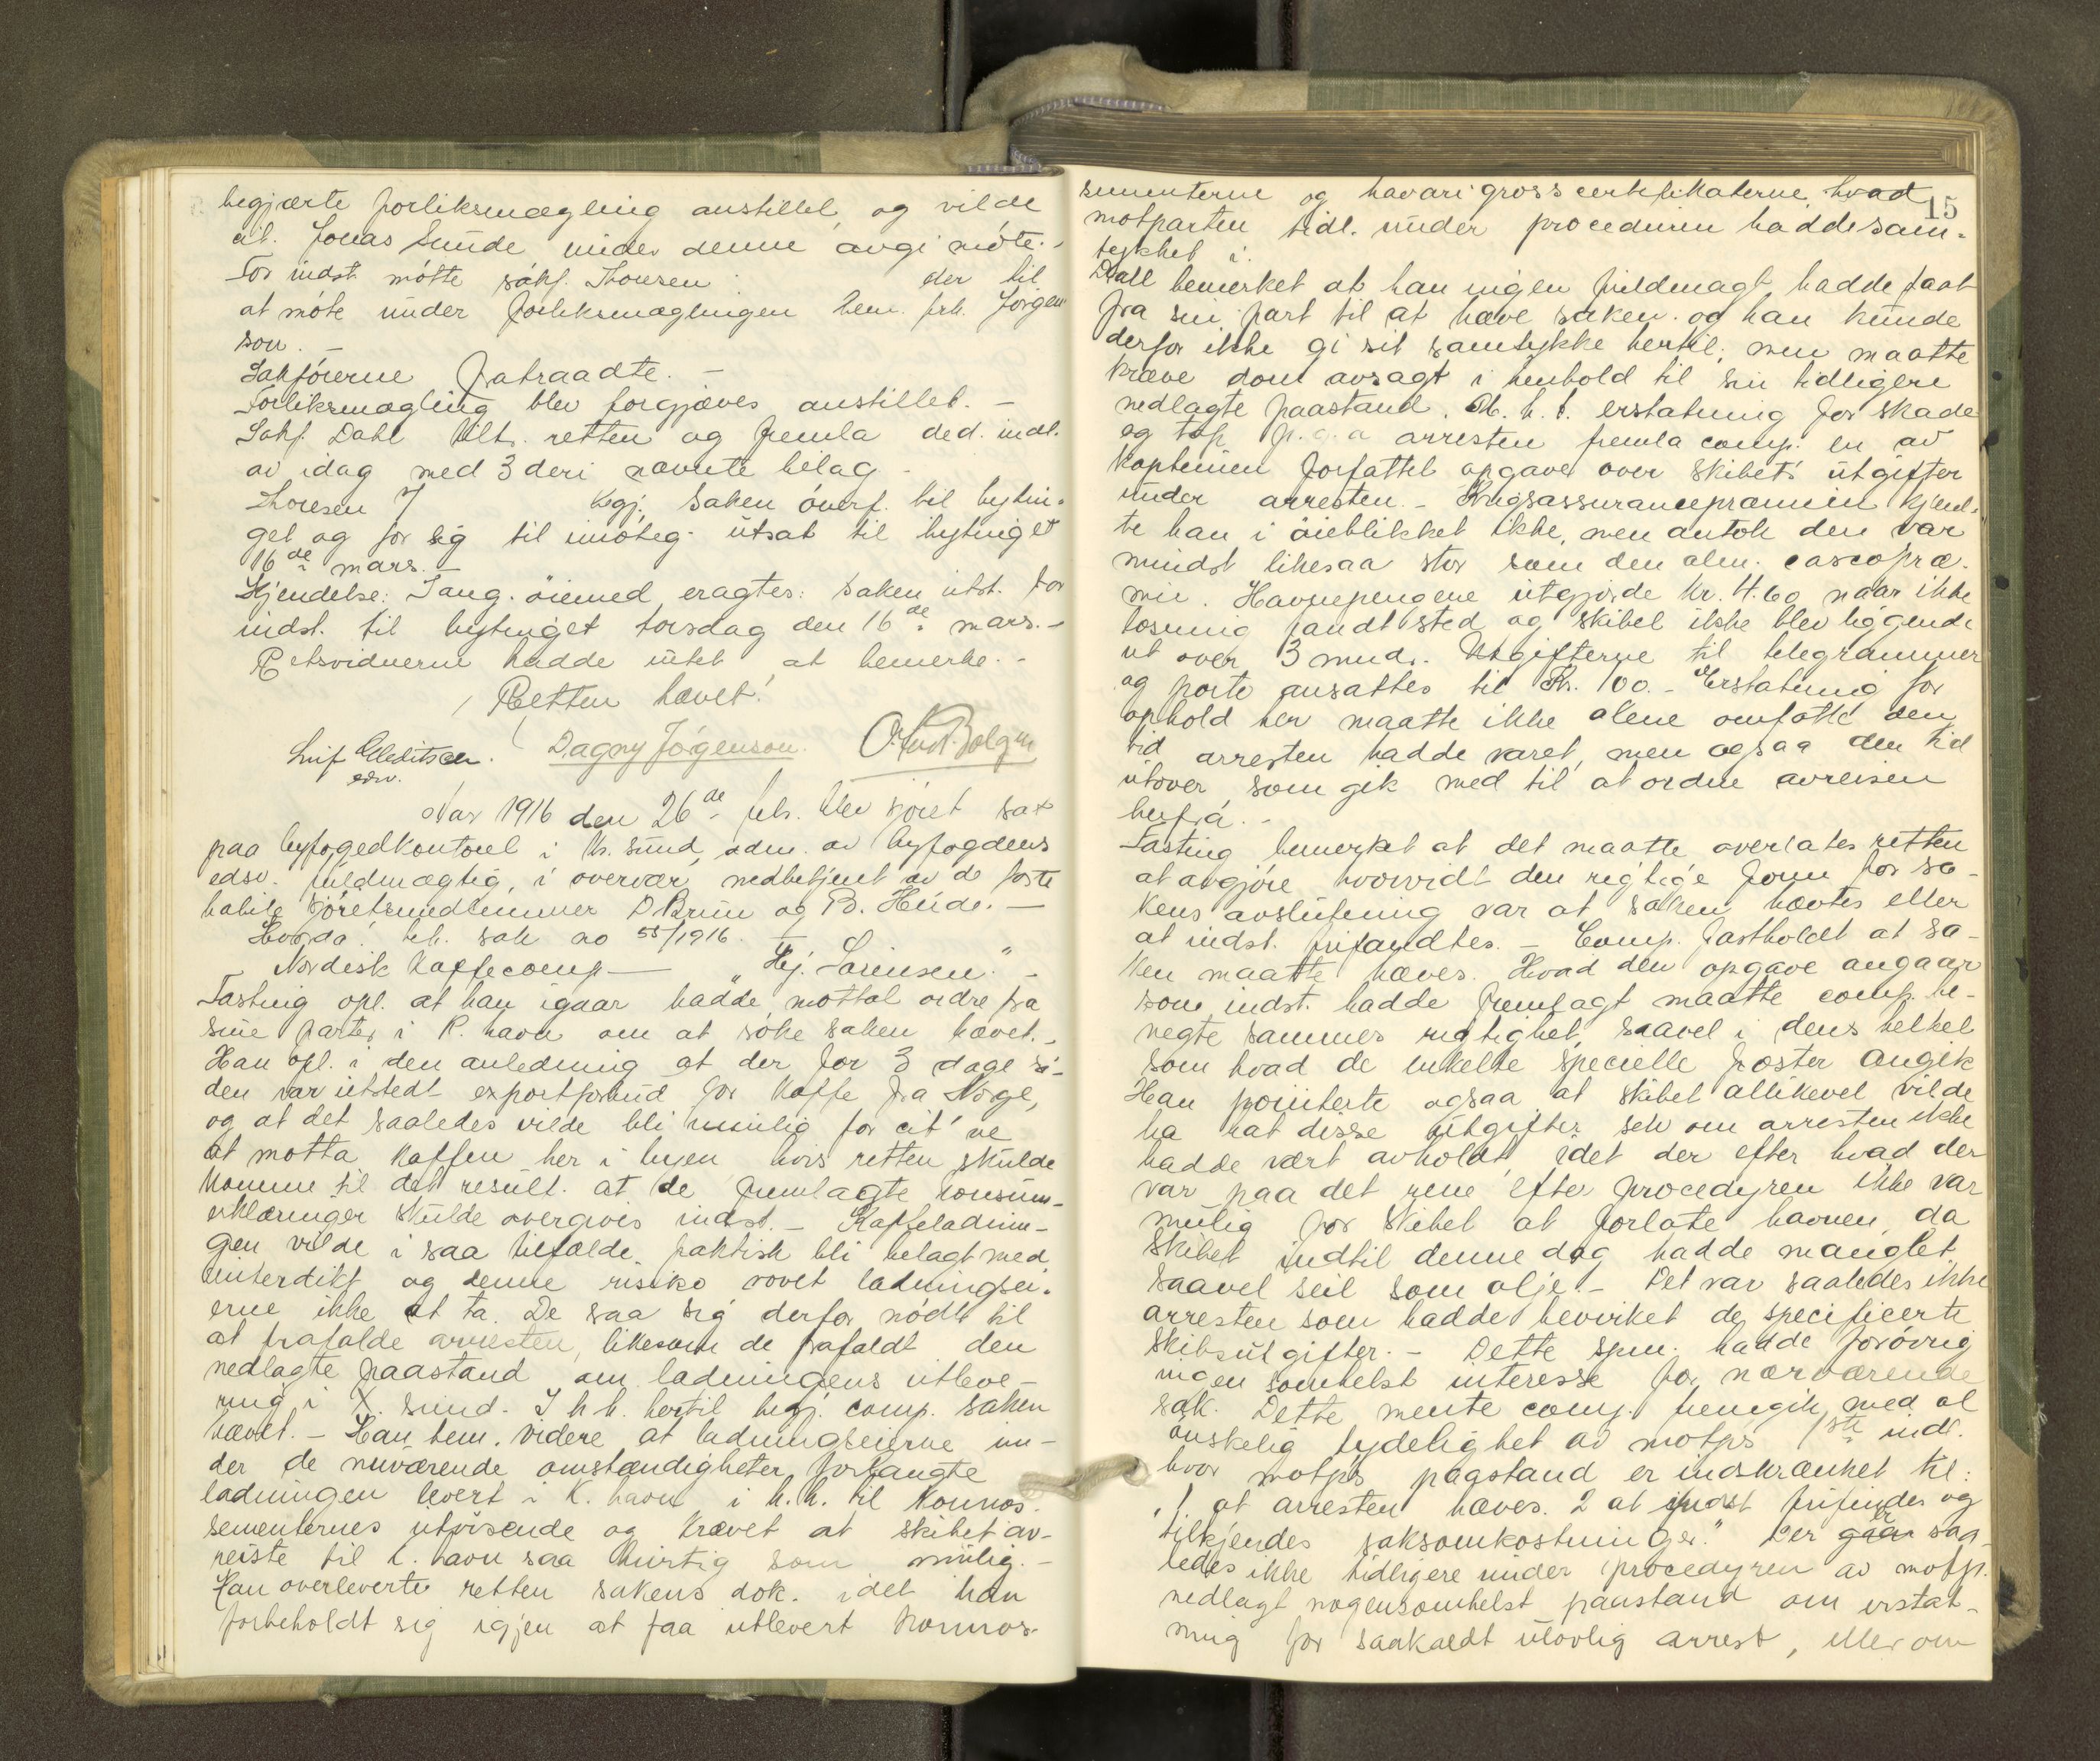 begjærte forliksmægling anstillet, og vilde
cit. Jonas Sunde under denne avgi møte. -
For indst. møtte sakf. Thoresen der til
at møte under forliksmæglingen bem. frk. Jørgen
son. -
Sakførerne fratraadte. -
Forliksmægling blev forgjæves anstillet. -
Sakf. Dahl tilt. retten og fremla ded. indl.
av idag med 3 deri nævnte bilag -
Thoresen begj. saken overf. til bytin-
get og for sig til imøteg. utsat til bytinget
16de mars. -
Kjendelse: I ang. øiemed eragtes: Saken utst. for
indst. til bytinget torsdag den 16de mars. -
Retsvidnerne hadde intet at bemerke. -
Retten hævet!
Leif Gleditsch. Dagny Jørgenson. O. Knut. Bolgen
edsv.
Aar 1916 den 26de feb. blev sjøret sat
paa byfogedkontoret i Kr. sund, adm. av byfogdens
edsv. fuldmægtig, i overvær, medbetjent av de faste
habile sjøretsmedlemmer D Brun og B. Heide. -
Hvorda! beh. sak no 55/1916.
Nordisk Kaffecomp — "Hj. Sørensen." -
Tasting opl. at han igaar hadde mottat ordre fra
sine parter i K. havn om at søke saken hævet. -
Han opl. i den anledning at der for 3 dage si-
den var utstedt exportforbud for kaffe fra Norge,
og at det saaledes vilde bli umulig for cit'ne
at motta kaffen her i byen hvis retten skulde
komme til det result. at de fremlagte konsum-
erklæringer skulde overgives indst. - Kaffeladnin-
gen vilde i saa tilfælde faktisk bli belagt med
interdikt og denne risiko vovet ladningsei-
erne ikke at ta. De saa sig derfor nødt til
at frafalde arresten, likesom de frafaldt den
nedlagte paastand om ladningens utleve-
ring i X. sund. I h. h. hertil begj. comp. saken
hævet. - Han bem. videre at ladningseierne un-
der de nuværende omstændigheter forlangte
ladningen levert i K. havn i h. h. til konnos-
sementernes utvisende og krævet at skibet av-
reiste til K. havn saa hurtig som mulig. -
Han overleverte retten sakens dok. idet han
forbeholdt sig igjen at faa utlevert konnos-
15
sementerne og havarigrosscertifikaterne, hvad
motparten tidl. under proceduren hadde sam-
tykket i.
Dahl bemerket at han ingen fuldmagt hadde faat
fra sin part til at hæve saken og han kunde
derfor ikke gi sit samtykke hertil; men maatte
kræve dom avsagt i henhold til sin tidligere
nedlagte paastand. M. h. t. erstatning for skade
og tap p.g.a arresten fremla comp. en av
kapteinen forfattet opgave over skibets utgifter
under arresten. - Krigsassurancepræmien kjend-
te han i øieblikket ikke, men antok den var
mindst likesaa stor som den alm. cascopræ-
mie. Havnepengene utgjorde kr. 4.60 naar ikke
losning fandt sted og skibet ikke blev liggende
ut over 3 mnd. Utgifterne til telegrammer
og porto ansattes til Kr. 100. - Erstatning for
ophold her maatte ikke alene omfatte den
tid arresten hadde varet, men ogsaa den tid
utover som gik med til at ordne avreisen
herfra. -
Tasting bemerket at det maatte overlates retten
at avgjøre hvorvidt den rigtige form for sa-
kens avslutning var at saken hævtes eller
at indst. frifandtes. - Comp. fastholdt at sa-
ken maatte hæves. Hvad den opgave angaar
som indst. hadde fremlagt maatte comp. be-
negte sammes rigtighet, saavel i dens helhet
som hvad de enkelte specielle poster angik
Han pointerte ogsaa at skibet allikevel vilde
ha hat disse utgifter selv om arresten ikke
hadde vært avholdt, idet der efter hvad der
var paa det rene efter procedyren ikke var
mulig for skibet at forlate havnen, da
skibet indtil denne dag hadde manglet
saavel seil som olje. - Det var saaledes ikke
arresten som hadde bevirket de specificerte
skibsutgifter. - Dette spm. hadde forøvrig
ingen somhelst interesse for nærværende
sak. Dette mente comp. fremgik med al
ønskelig tydelighet av motps 1ste indl.
hvor motp's paastand er indskrænket til:
"1 at arresten hæves. 2 at indst frifindes og
tilkjendes saksomkostninger." Der er saa-
ledes ikke tidligere under procedyren av motp.
nedlagt nogensomhelst paastand om erstat-
ning for saakaldt ulovlig arrest, eller om